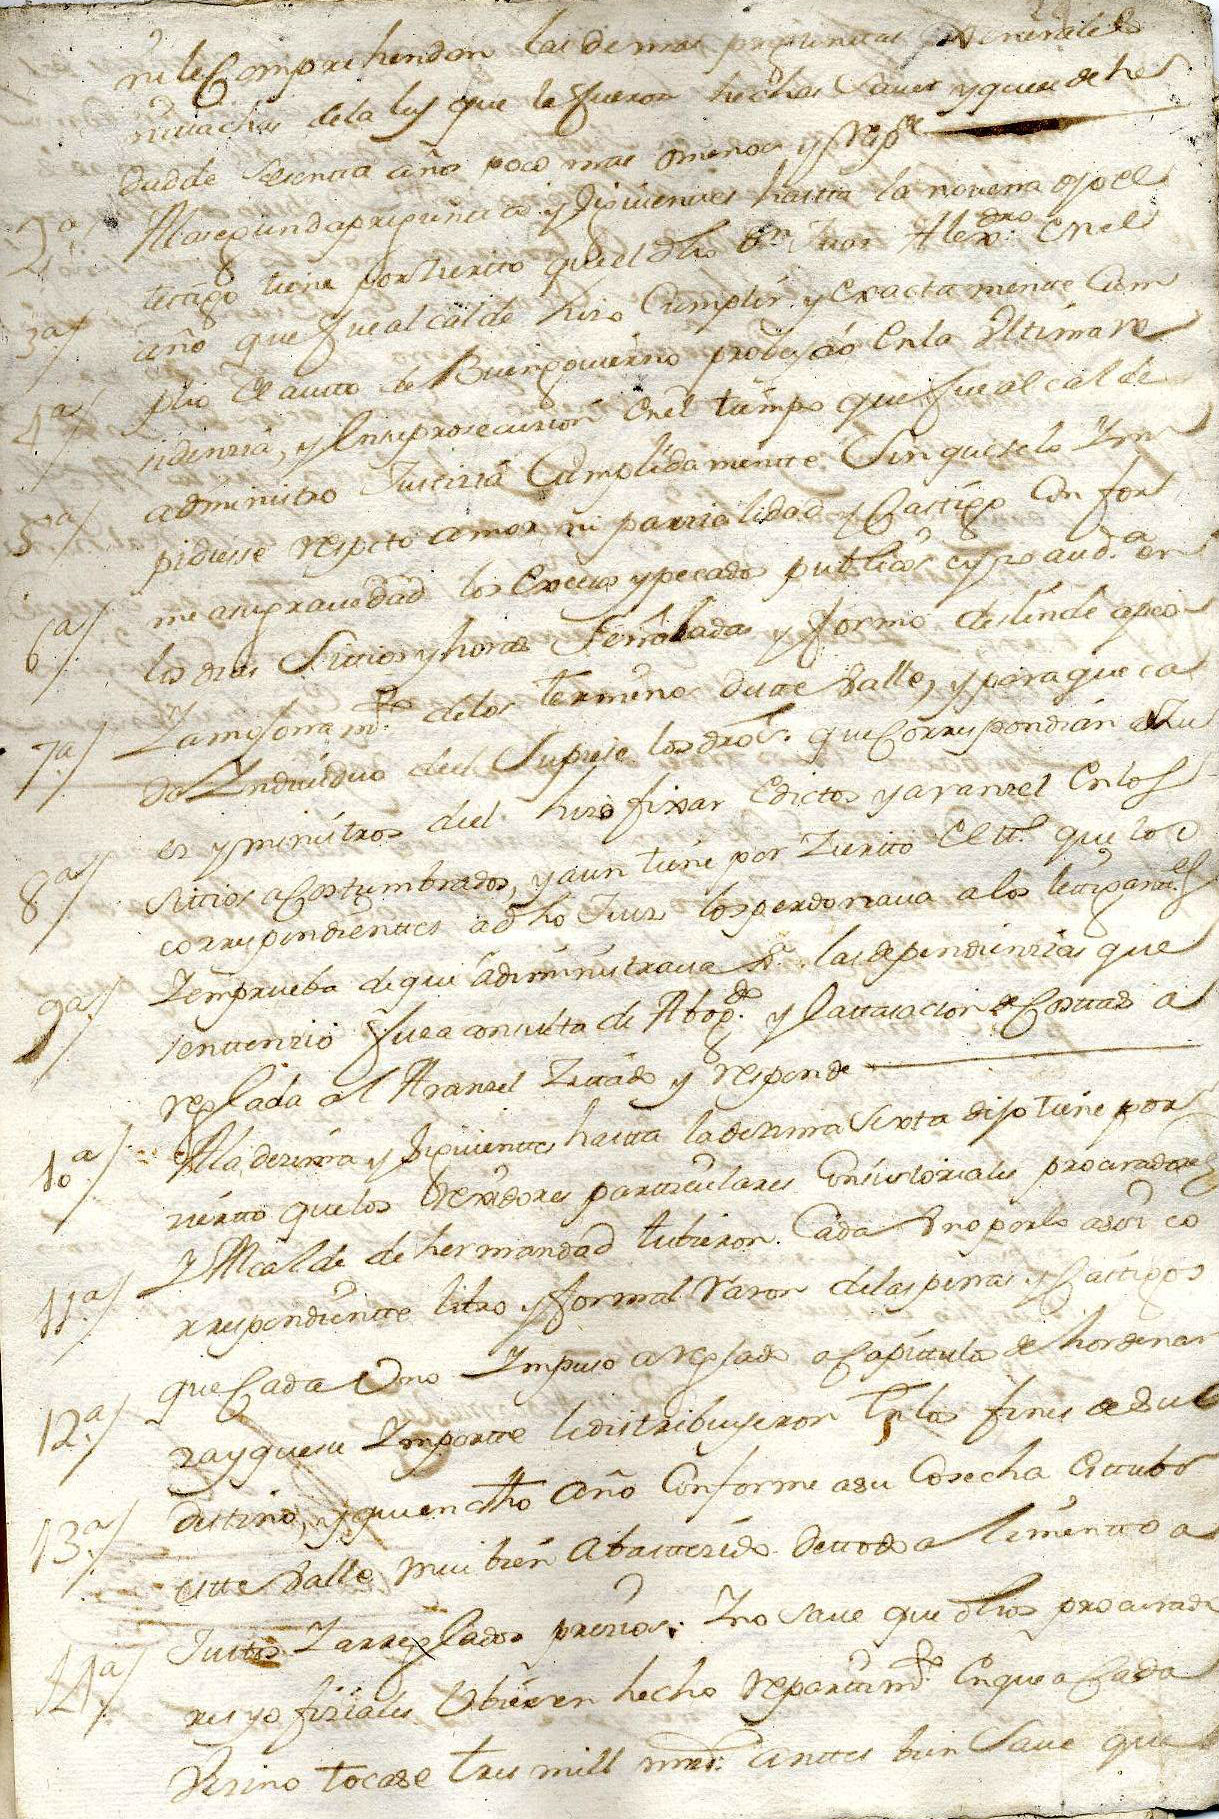 ni le Comprehendan las demas preguntas Generales
de la ley que le fueron hechas Saver y que es de he
dad de Sesenta años poco mas omenos y Resp.de
2ª/ Ala segunda pregunta y siguientes hasta la novena dijo el
testigo tiene por zierto que el dho Dn Juan Alexdro. en el
3ª/ año que fue alcalde hizo Cumplir y exactamente Cum
4ª/ plio el autto de Buengovierno probeido en la Ultima re
sidenzia, y en su prosecuzion en el tiempo que fue alcalde
administro Justizia Cumplidamente Sin que se lo Im
5ª/ pidiesse respeto amor ni parzialidad y Castigo Confor
me a su gravedad los excesos y pecados publicos oyo aud.ª en
6ª/ los dias Sittios y horas Señaladas y formo deslinde apeo
Zamojonam.to de los terminos de este Valle, y para que ca
7ª/ da Individuo del Supiese los dros. que Correspondian a Su
ez y ministros del hizo fixar Edictos y aranzel en los
8ª/ Sittios acostumbrados, y aun tiene por Zierto el tt.º que los
correspondientes a dho Juez los perdonava a los letigantes
9ª/ Zemprueba de que administrava las dependienzias que
sentenzió fue a consulta de Abog.do y la tasazion de Costas a
reglada al Aranzel Zitado y responde
10ª/ Ala dezima y siguientes hasta la dezima Sexta dijo tiene por
zierto que los Rexidores particulares Consistoriales procuradores
Y Alcalde de hermandad tubieron Cada Uno por lo asi co
11ª/ rrespondiente libro y formal razon de las penas y Castigos
que Cada Uno Impuso arreglado a Capitulo de hordenan
12ª/ za y que su Importe le distribuyeron En los fines de su
destino, y que en dho año Conforme a su Cosecha estubo
13ª/ este Valle mui bien Abastezido de todo alimento a
Justos Zarreglados prezios; Zno Save que dhos procurado
14ª/ res y o fiziales Ubiesen hecho repartim.to en que a Cada
Vezino tocase tres mill mrs. antes bien Save que